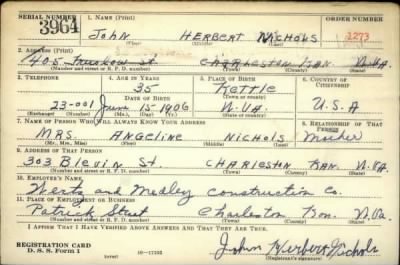 SERIAL NUMBER 1. NAME (Print) ORDER NUMBER
3964 JOHN HERBERT NICHOLS 1273
(First) (Middle) (Last)
2. ADDRESS (Print)
405 St CHARLESTON KAN. W.VA.
(Number and street or R. F. D. number) (Town) (County) (State)
3. TELEPHONE 4. AGE IN YEARS 5. PLACE OF BIRTH 6. COUNTRY OF CITIZENSHIP
35 Kettle
DATE OF BIRTH
23-001 June 15-1906 W.VA. U.S.A
(Exchange) (Number) (Mo.) (Day) (Yr.) (State or country)
7. NAME OF PERSON WHO WILL ALWAYS KNOW YOUR ADDRESS 8. RELATIONSHIP OF THAT PERSON
MRS. ANGELINE NICHOLS Mother
(Mr., Mrs., Miss) (First) (Middle) (Last)
9. ADDRESS OF THAT PERSON
303 Blevin St. CHARLESTON KAN. W.VA.
(Number and street or R. F. D. number) (Town) (County) (State)
10. EMPLOYER'S NAME
and Medley construction Co.
11. PLACE OF EMPLOYMENT OR BUSINESS
Patrick Street Charleston Kan. W.Va.
(Number and street or R. F. D. number) (Town) (County) (State)
I AFFIRM THAT I HAVE VERIFIED ABOVE ANSWERS AND THAT THEY ARE TRUE.
REGISTRATION CARD
D. S. S. Form 1 16-17105 John Herbert Nichols
(Registrant's signature)